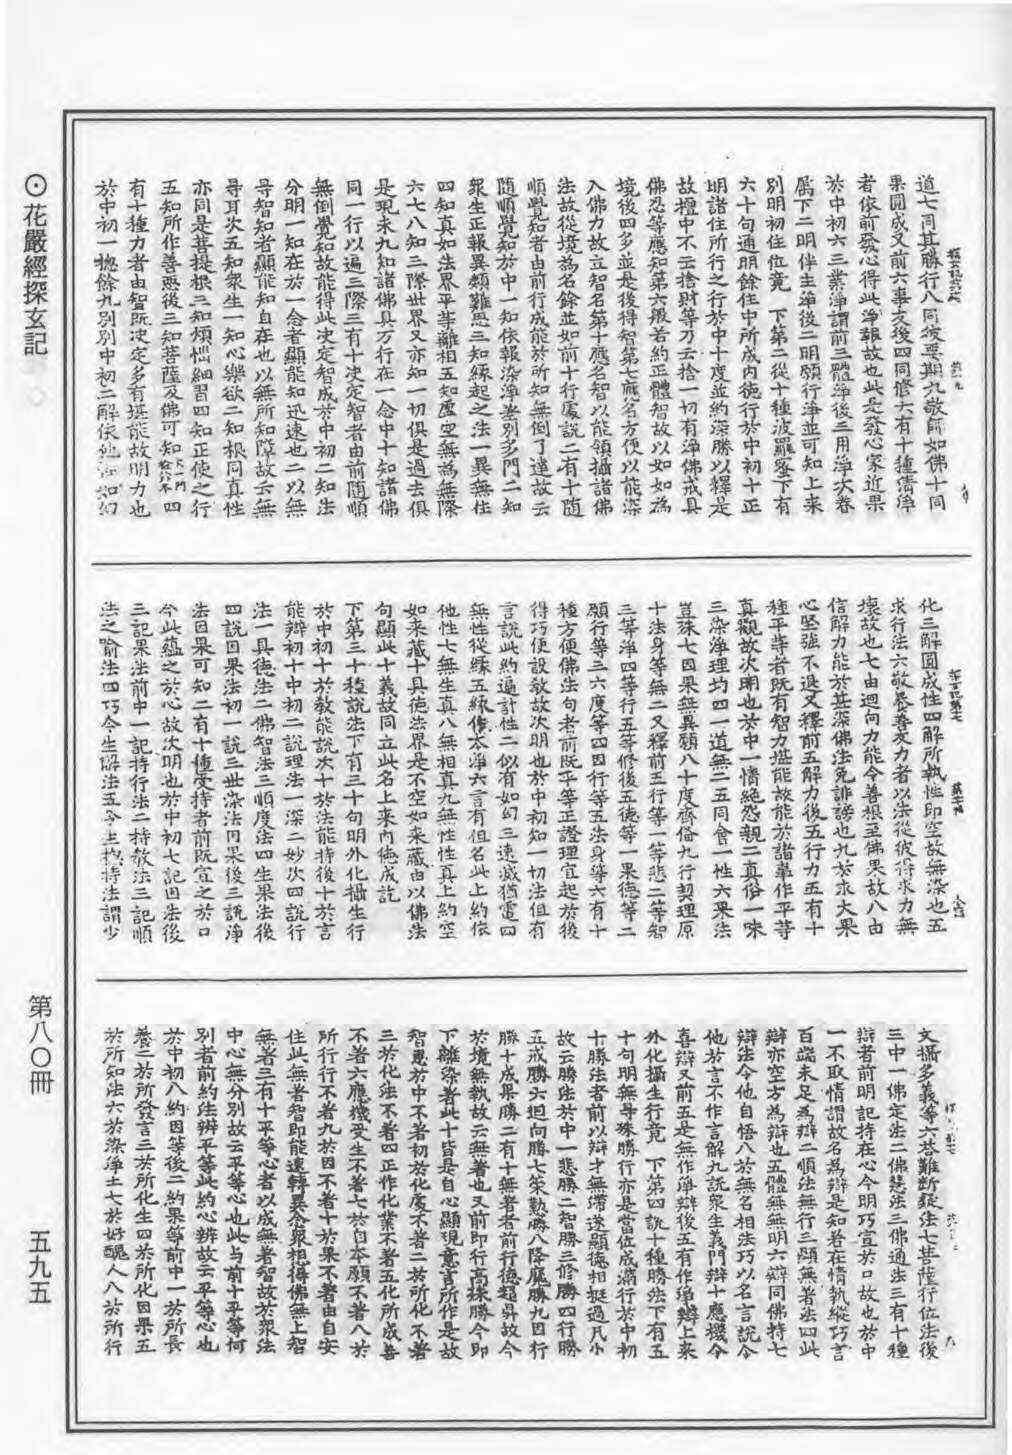 道七同其勝行八同彼要期九敬師如佛十同
果圓成又前六事友後四同修大有十種清淨
者依前發心得此淨報故也此是發心家近果
於中初六三業淨謂前三體淨後三用淨次眷
屬下二明伴主淨後二明願行淨並可知上來
別明初住位竟　下第二從十種波羅蜜下有
六十句通明餘住中所成內德行於中初十正
明諸住所行之行於中十度並約深勝以釋是
故檀中不云捨財等乃云捨一切有淨佛戒具
佛忍等應知第六般若約正體智故以如如為
境後四多並是後得智第七應名方便以能深
入佛力故立智名第十應名智以能領攝諸佛
法故從境為名餘並如前十行處說二有十隨
順覺知者由前行成能於所知無倒了達故云
隨順覺知於中一知依報染淨差別多門二知
眾生正報異類難思三知緣起之法一異無住
四知真如法界平等離相五知虛空無為無際
六七八知三際世界又亦知一切俱是過去俱
是現未九知諸佛具万行在一念中十知諸佛
同一行以遍三際三有十決定智者由前隨順
無倒覺知故能得此決定智成於中初二知法
分明一知在於一念者顯能知迅速也二以無
㝵智知者顯能知自在也以無所知障故云無
㝵耳次五知眾生一知心樂欲二知根同真性
亦同是菩提根三知煩惱細習四知正使之行
五知所作善惡後三知菩薩及佛可知　四
有十種力者由智既決定多有堪能故明力也
於中初一總餘九別別中初二解依他如幻
化三解圓成性四解所執性即空故無染也五
求行法六敬養善友力者以法從彼得求力無
壞故也七由迴向力能令善根至佛果故八由
信解力能於甚深佛法免誹謗也九於求大果
心堅強不退又釋前五解力後五行力五有十
種平等者既有智力堪能故能於諸事作平等
真觀故次明也於中一情絕怨親二真俗一味
三染淨理均四一道無二五同會一性六果法
豈殊七因果無異願八十度齊修九行契理原
十法身等無二又釋前五行等一等悲二等智
三等淨四等行五等修後五德等一果德等二
願行等三六度等四四行等五法身等六有十
種方便佛法句者前既平等正證理宜起於後
得巧便設教故次明也於中初知一切法但有
言說此約遍計性二似有如幻三速滅猶電四
無性從緣五緣作本淨六言有但名此上約依
他性七無生真八無相真九無性性真上約空
如來藏十具德法界是不空如來藏由以佛法
句顯此十義故同立此名上來內德成訖
下第三十種說法下有三十句明外化攝生行
於中初十於教能說次十於法能持後十於言
能辯初十中初二說理法一深二妙次四說行
法一具德法二佛智法三順度法四生果法後
四說因果法初一說三世染法因果後三說淨
法因果可知二有十種受持者前既宣之於口
今此蘊之於心故次明也於中初七記因法後
三記果法前中一記持行法二持教法三記順
法之喻法四巧令生解法五令生總持法謂少
文攝多義等六荅難斷疑法七菩薩行位法後
三中一佛定法二佛變法三佛通法三有十種
辯者前明記持在心今明巧宣於口故也於中
一不取情謂故名為辯是知若在情執縱巧言
百端未足為辯二順法無行三顯無著法四此
辯亦空方為辯也五體無無明六辯同佛持七
辯法令他自悟八於無名相法巧以名言說令
他於言不作言解九說眾生義門辯十應機令
喜辯又前五是無作淨辯後五有作淨辯上來
外化攝生行竟　下第四說十種勝法下有五
十句明無㝵殊勝行亦是當位成滿行於中初
十勝法者前以辯才無滯遂顯德相挺過凡小
故云勝法於中一悲勝二智勝三修勝四行勝
五戒勝六迴向勝七策勤勝八降魔勝九因行
勝十成果勝二有十無著者前行德超昇故今
於境無執故云無著也又前即行高殊勝今即
下離染著此十皆是自心顯現意言所作是故
智惠於中不著初於化處不著二於所化不著
三於化法不著四正作化業不著五化所成善
不著六應機受生不著七於自本願不著八於
所行行不著九於因不著十於果不著由自安
住此無著智即能速轉異念眾想得佛無上智
無著三有十平等心者以成無著智故於眾法
中心無分別故云平等心也此与前十平等何
別者前約法辨平等此約心辨故云平等心也
於中初八約因等後二約果等前中一於所長
養二於所發言三於所化生四於所化因果五
於所知法六於染淨土七於好醜人八於所行
⊙花嚴經探玄記
第八〇冊
五九五